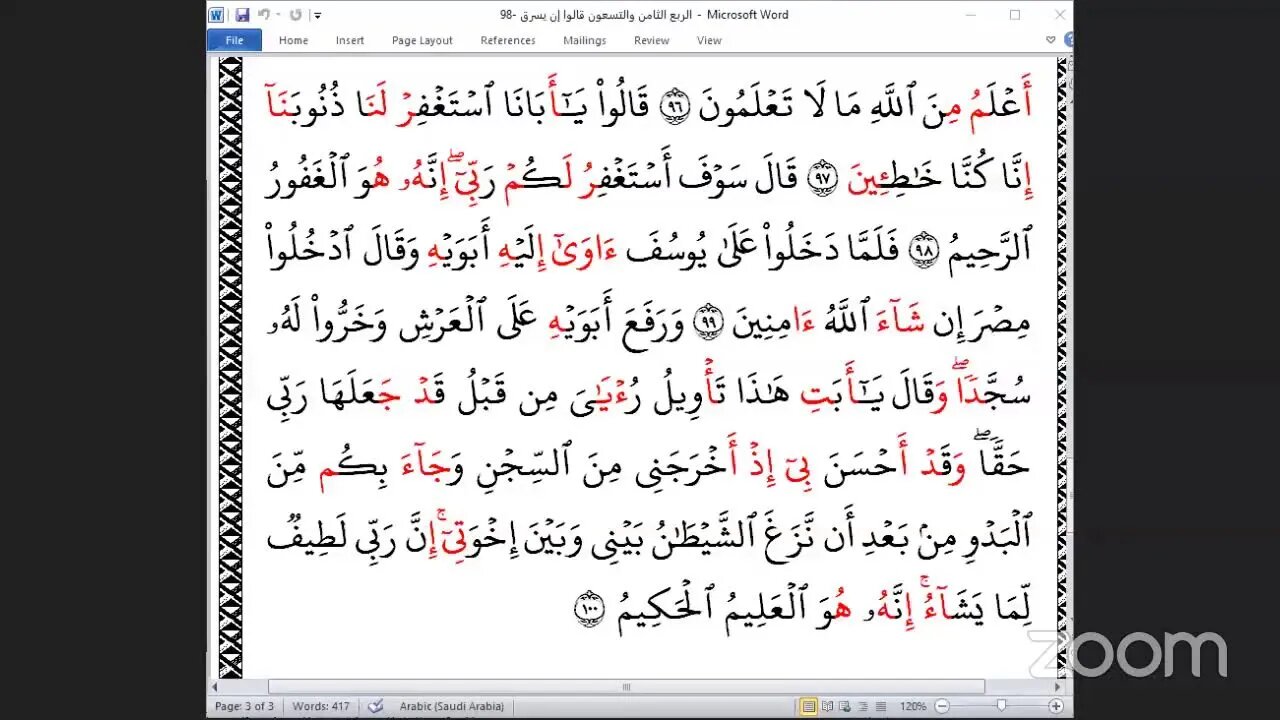 الربع الثامن والتسعون قالوا إن يسرق -98 - Microsoft Word
File Home Insert Page Layout References Mailings Review View
أَعۡلَمُ مِنَ ٱللَّهِ مَا لَا تَعۡلَمُونَ ٩٦ قَالُواْ يَٰٓأَبَانَا ٱسۡتَغۡفِرۡ لَنَا ذُنُوبَنَآ
إِنَّا كُنَّا خَٰطِـِٔينَ ٩٧ قَالَ سَوۡفَ أَسۡتَغۡفِرُ لَكُمۡ رَبِّيٓۖ إِنَّهُۥ هُوَ ٱلۡغَفُورُ
ٱلرَّحِيمُ ٩٨ فَلَمَّا دَخَلُواْ عَلَىٰ يُوسُفَ ءَاوَىٰٓ إِلَيۡهِ أَبَوَيۡهِ وَقَالَ ٱدۡخُلُواْ
مِصۡرَ إِن شَآءَ ٱللَّهُ ءَامِنِينَ ٩٩ وَرَفَعَ أَبَوَيۡهِ عَلَى ٱلۡعَرۡشِ وَخَرُّواْ لَهُۥ
سُجَّدٗاۖ وَقَالَ يَٰٓأَبَتِ هَٰذَا تَأۡوِيلُ رُءۡيَٰيَ مِن قَبۡلُ قَدۡ جَعَلَهَا رَبِّي
حَقّٗاۖ وَقَدۡ أَحۡسَنَ بِيٓ إِذۡ أَخۡرَجَنِي مِنَ ٱلسِّجۡنِ وَجَآءَ بِكُم مِّنَ
ٱلۡبَدۡوِ مِنۢ بَعۡدِ أَن نَّزَغَ ٱلشَّيۡطَٰنُ بَيۡنِي وَبَيۡنَ إِخۡوَتِيٓۚ إِنَّ رَبِّي لَطِيفٞ
لِّمَا يَشَآءُۚ إِنَّهُۥ هُوَ ٱلۡعَلِيمُ ٱلۡحَكِيمُ ١٠٠
zoom
Page: 3 of 3 Words: 417 Arabic (Saudi Arabia) 120%